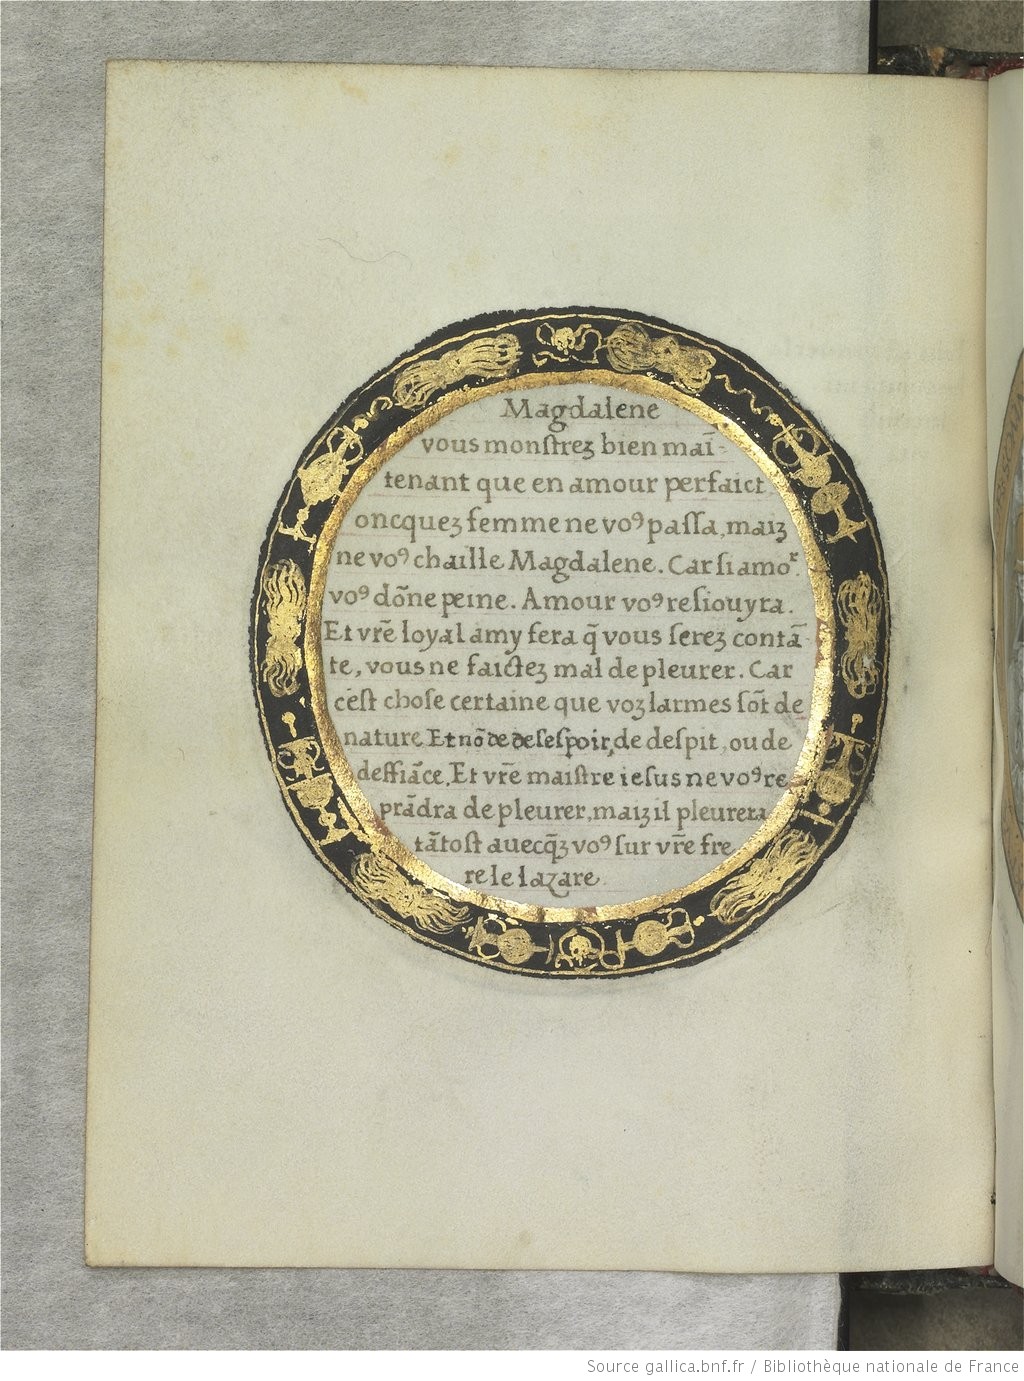 Magdalene
vous monſtrez bien maī-
tenant que en amour perfaict
oncquez femme ne voꝰ paſſa, maiz
ne voꝰ chaille Magdalene. Car ſi amoʳ.
voꝰ dōne peine. Amour voꝰ reſiouyra.
Et vr̄e loyal amy fera q̄ vous ſerez contā-
te, vous ne faictez mal de pleurer. Car
c'eſt choſe certaine que voz larmes ſōt de
nature Et nō de deſeſpoir, de deſpit, ou de
deffiāce. Et vr̄e maiſtre ieſus ne voꝰ re
prādra de pleurer, maiz il pleurera
tātoſt auecq̄z voꝰ ſur vr̄e fre
re le lazare.
Source gallica.bnf.fr / Bibliothèque nationale de France